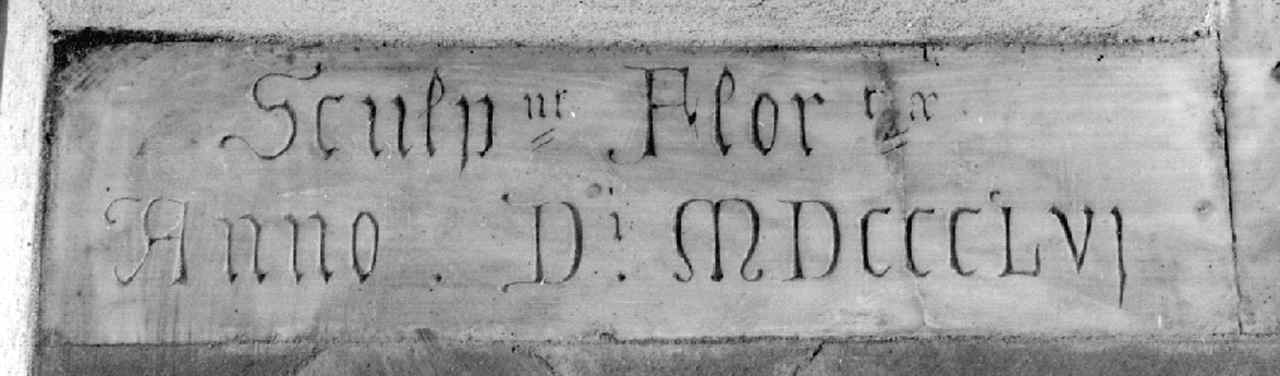 Sculp nt Flor tix
Anno . Di. MDCCCLVI